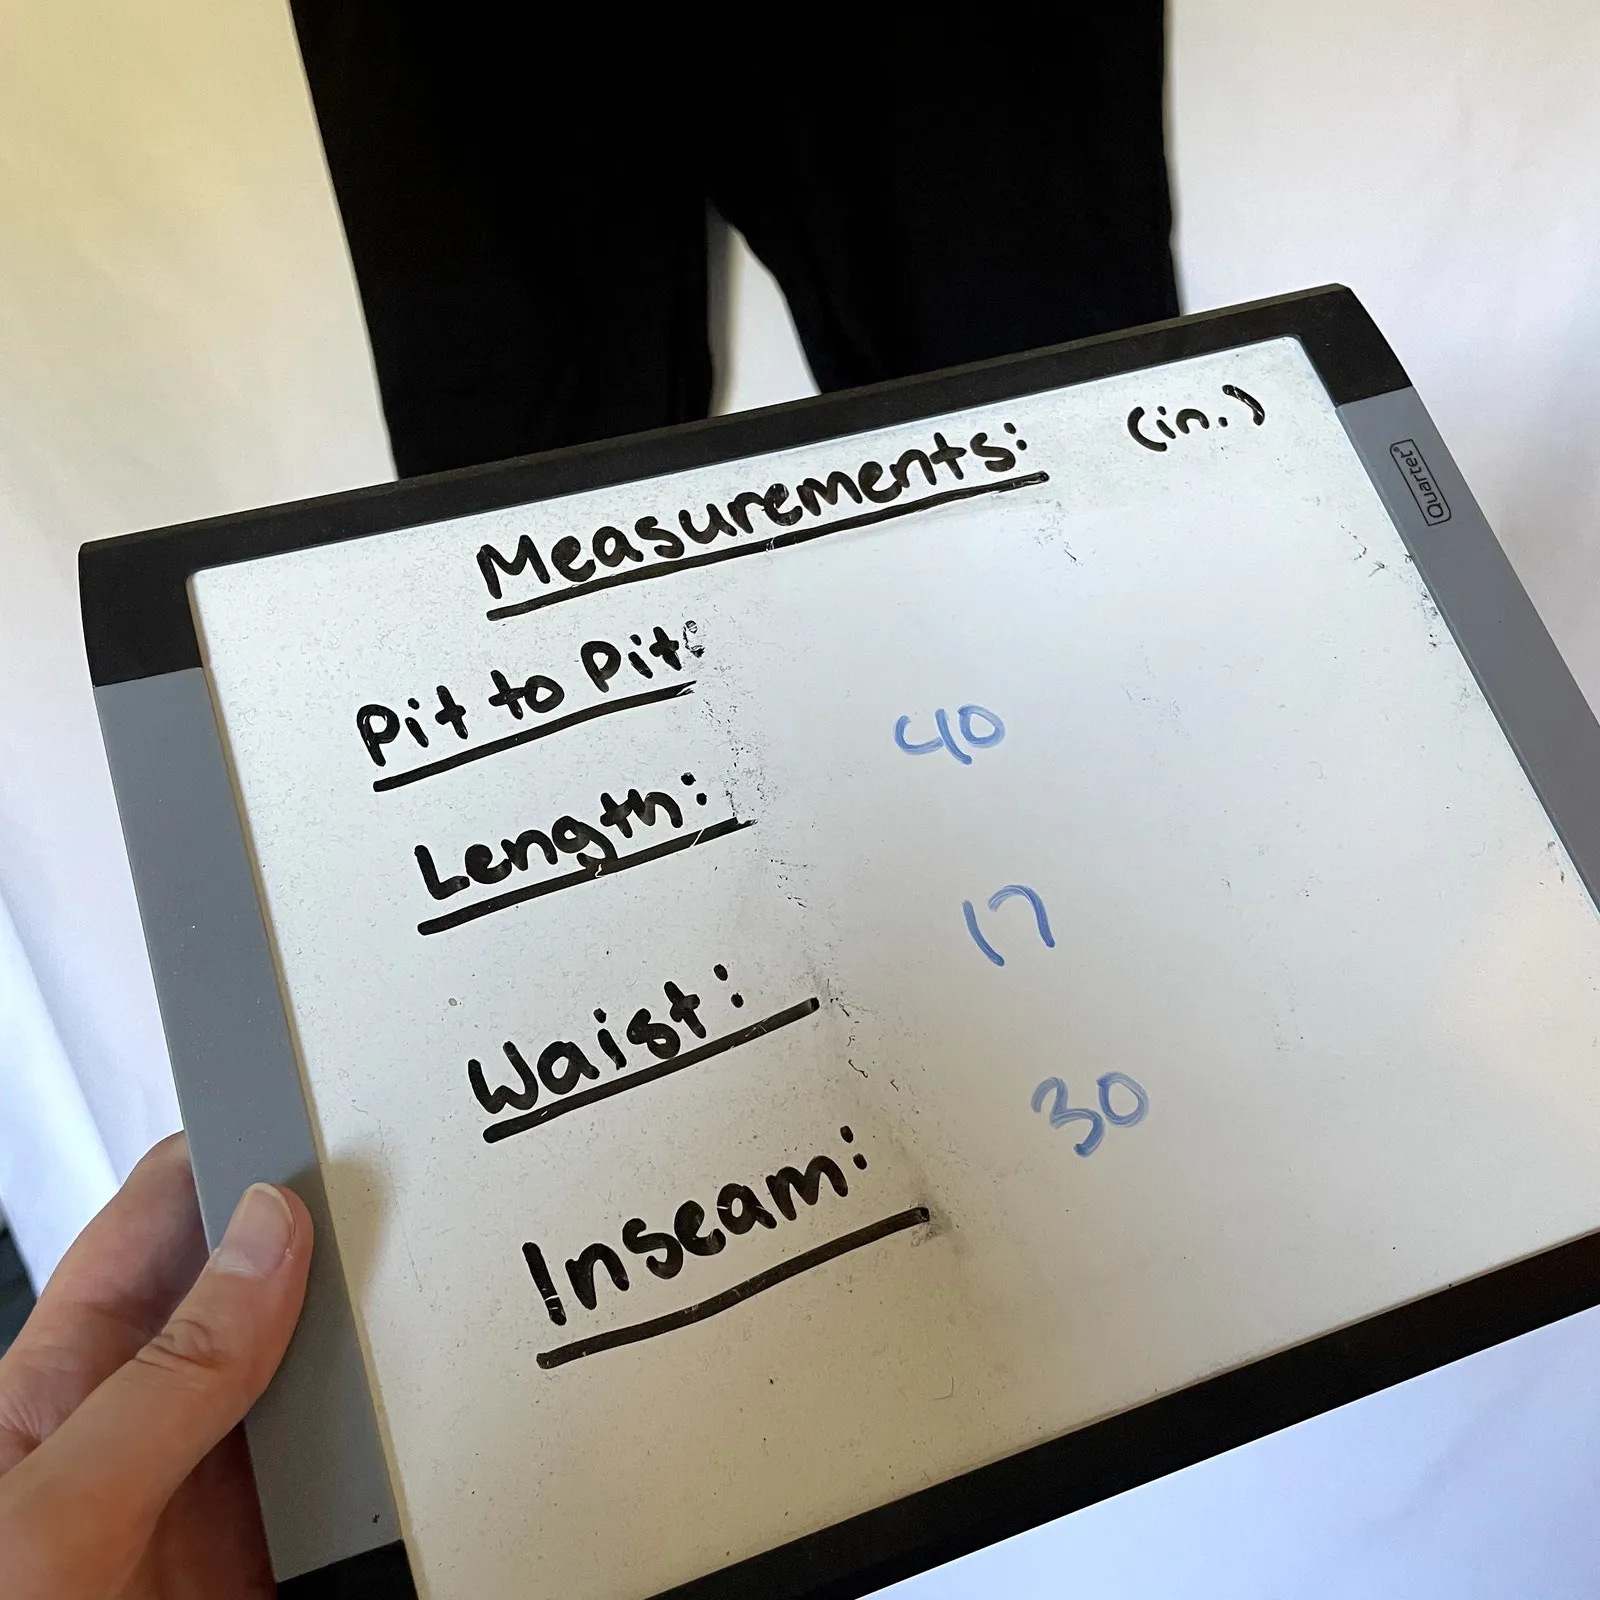 Measurements: (in.)
Quartet
Pit to Pit:
Length: 40
Waist: 17
Inseam: 30